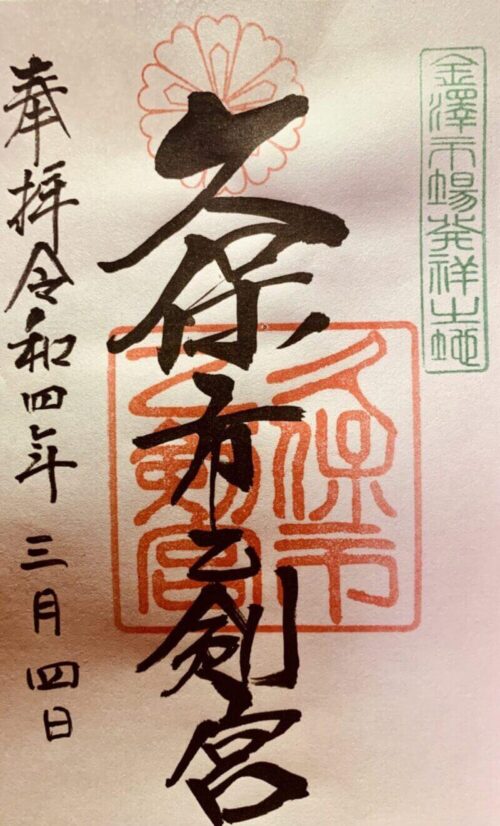 金澤市場発祥之地
久保市乙剣宮
久保市
乙剣宮
奉拝令和四年三月四日